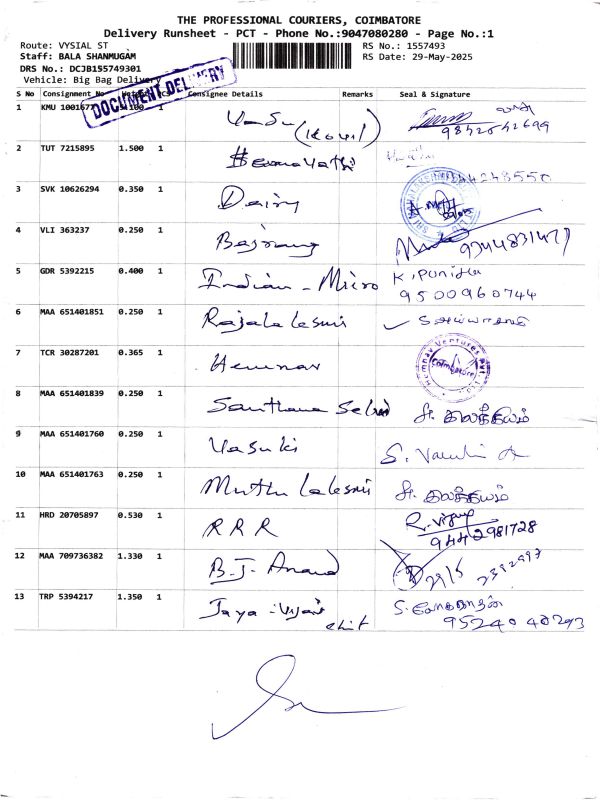 THE PROFESSIONAL COURIERS, COIMBATORE
Delivery Runsheet - PCT - Phone No.:9047080280 - Page No.:1
Route: VYSIAL ST
RS No.: 1557493
Staff: BALA SHANMUGAM
RS Date: 29-May-2025
DRS No.: DCJB155749301
Vehicle: Big Bag Delivery
DOCUMENT DELIVERY
S No Consignment No Weight PCS Consignee Details Remarks Seal & Signature
1 KMU 1001677 1 Vasu (Kovil) 9842542699
2 TUT 7215895 1.500 1 Hemavathi
3 SVK 10626294 0.350 1 Dairy
4 VLI 363237 0.250 1 Bajrang
5 GDR 5392215 0.400 1 Indian - Micro K. Punitha
9500960744
6 MAA 651401851 0.250 1 Rajalakshmi
7 TCR 30287201 0.365 1 Hemnav Hemnav Ventures Pvt. Ltd. Coimbatore
8 MAA 651401839 0.250 1 Santhana Selvi
9 MAA 651401760 0.250 1 Vasuki
10 MAA 651401763 0.250 1 Muthu Lakshmi
11 HRD 20705897 0.530 1 RRR R. Vijay
9442981728
12 MAA 709736382 1.330 1 B.J. Anand 29/5
13 TRP 5394217 1.350 1 Jaya - Vijai chit
9524040293